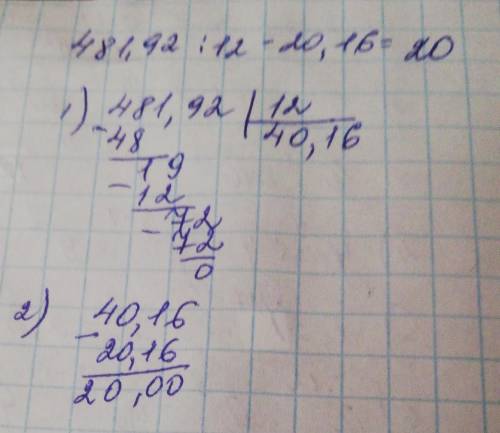 481,92 : 12 - 20,16 = 20
1) 481,92 | 12
- 48 40,16
19
- 12
72
- 72
0
2) 40,16
- 20,16
20,00